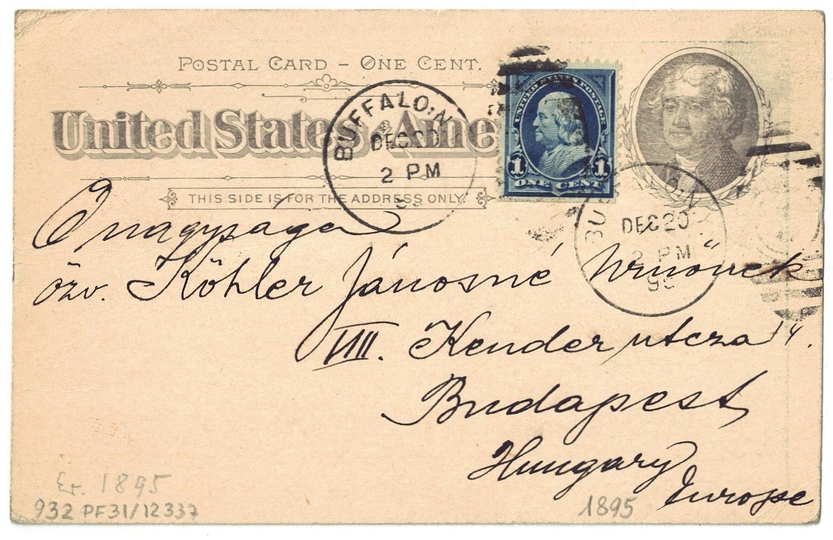 POSTAL CARD – ONE CENT.
United States of America
THIS SIDE IS FOR THE ADDRESS ONLY.
BUFFALO, N.
DEC 20
2 PM
UNITED STATES POSTAGE
1 1
ONE CENT
BU O, N.Y.
DEC 20
2 PM
95
Ő nagysága
özv. Köhler Jánosné Úrnőnek
VIII. Kender utcza 14.
Budapest
Hungary
Europe
Ér. 1895
932 PF31/12337
1895